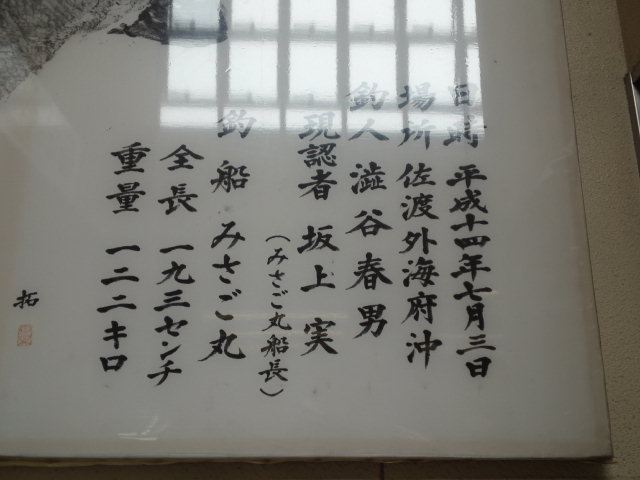 日時 平成十四年七月三日
場所 佐渡外海府沖
釣人 澁谷春男
現認者 坂上 実
(みさご丸船長)
釣船 みさご丸
全長 一九三センチ
重量 一二二キロ
拓